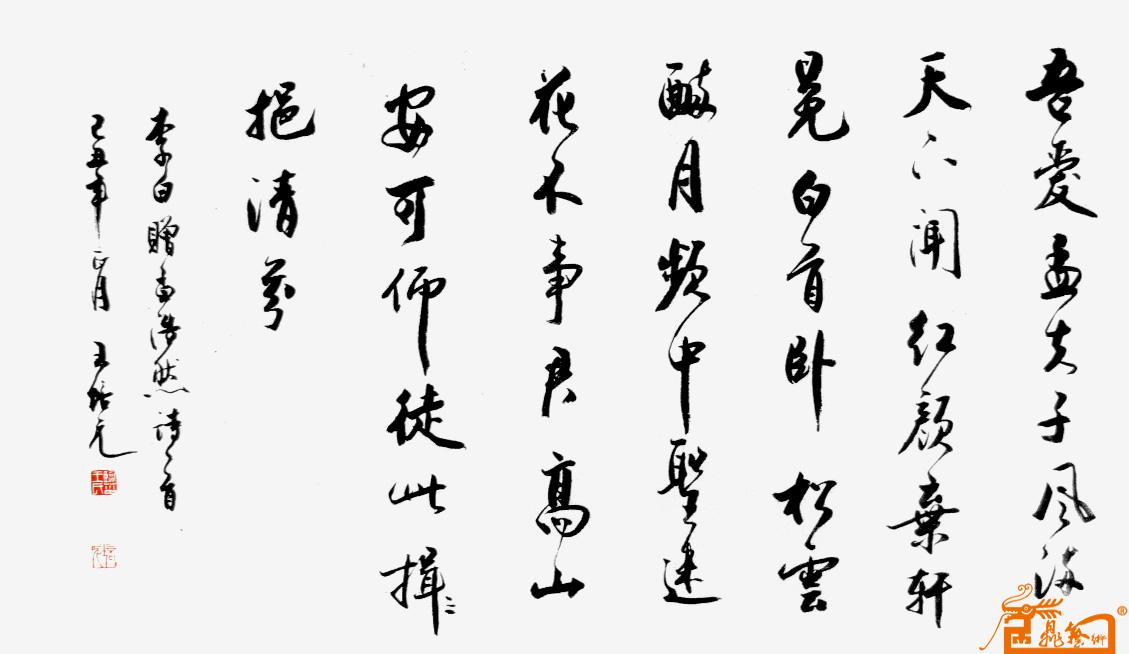 吾爱孟夫子风流
天下闻红颜弃轩
冕白首卧松云
醉月频中圣迷
花不事君高山
安可仰徒此揖〻
挹清芬
李白赠孟浩然诗一首
己丑年正月 王培元